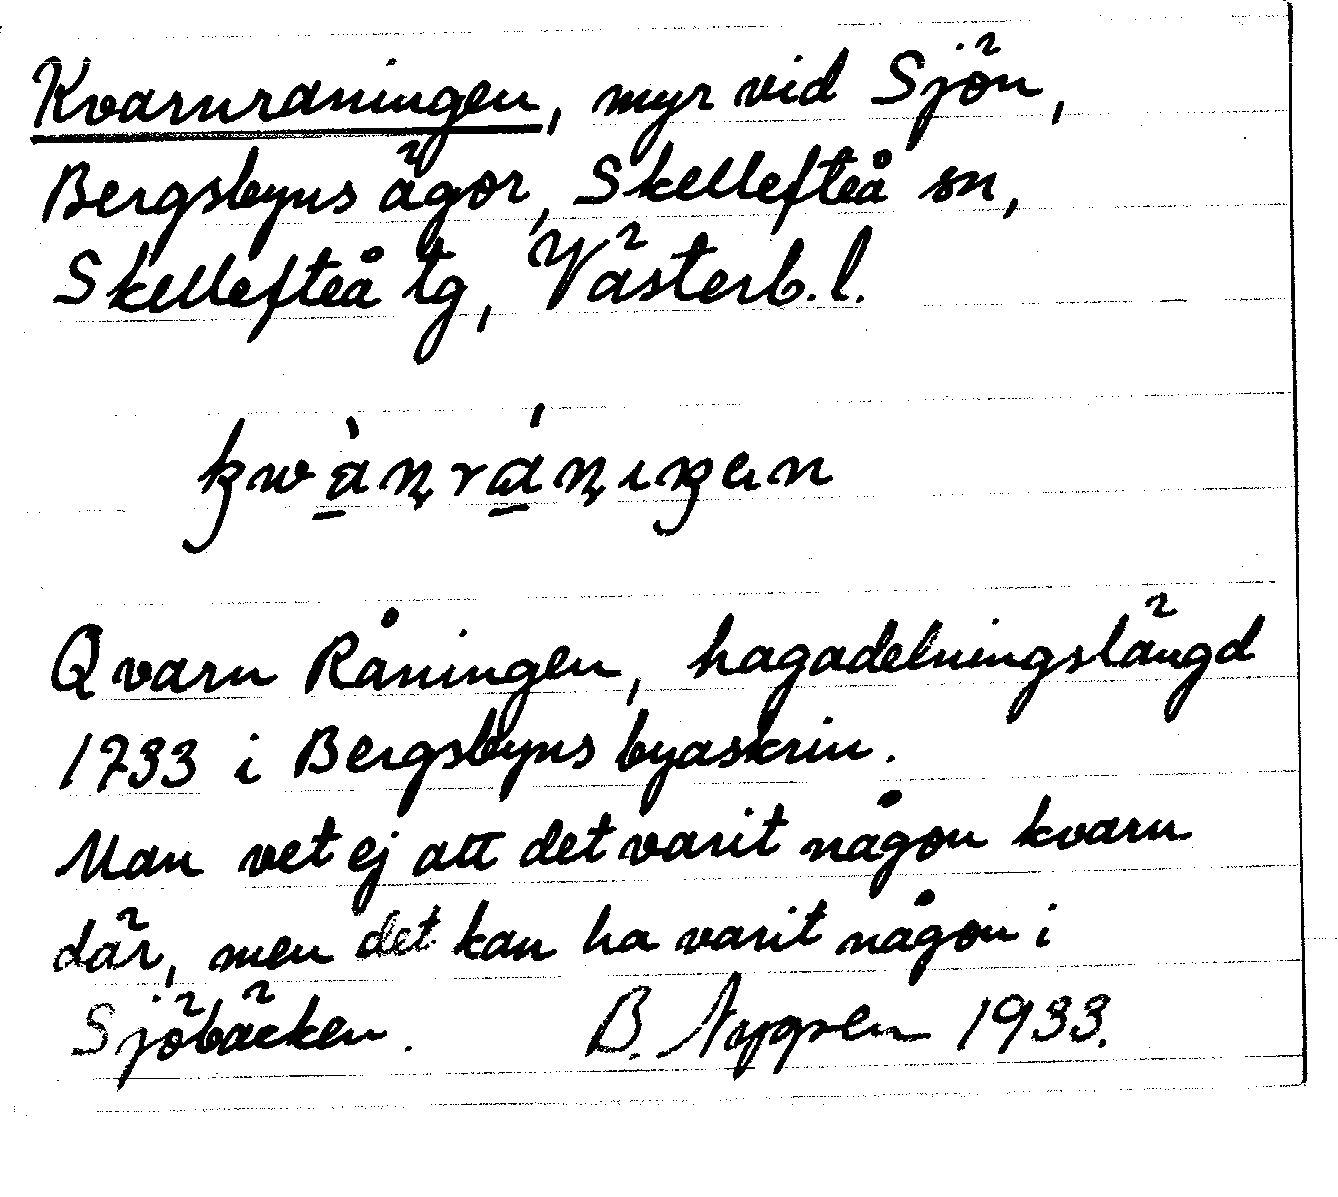 Kvarnraningen, myr vid Sjön,
Bergsbyns ägor, Skellefteå sn,
Skellefteå tg, Västerb. l.
Qvarn Råningen, hagadelningslängd
1733 i Bergsbyns byaskrin.
Man vet ej att det varit någon kvarn
där, men det kan ha varit någon i
Sjöbäcken. B. Nygren 1933.